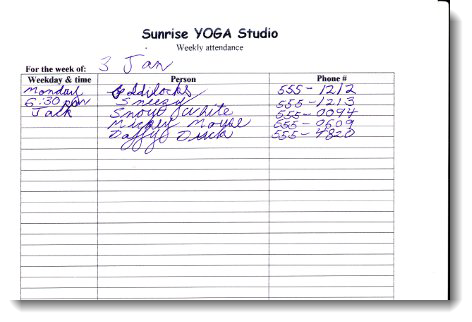 Sunrise YOGA Studio
Weekly attendance
For the week of: 3 Jan
Weekday & time Person Phone #
Monday Goldilocks 555-1212
6:30 pm Sneezy 555-1213
Jack Snow White 555-0094
Mickey Mouse 555-0609
Daffy Duck 555-4820